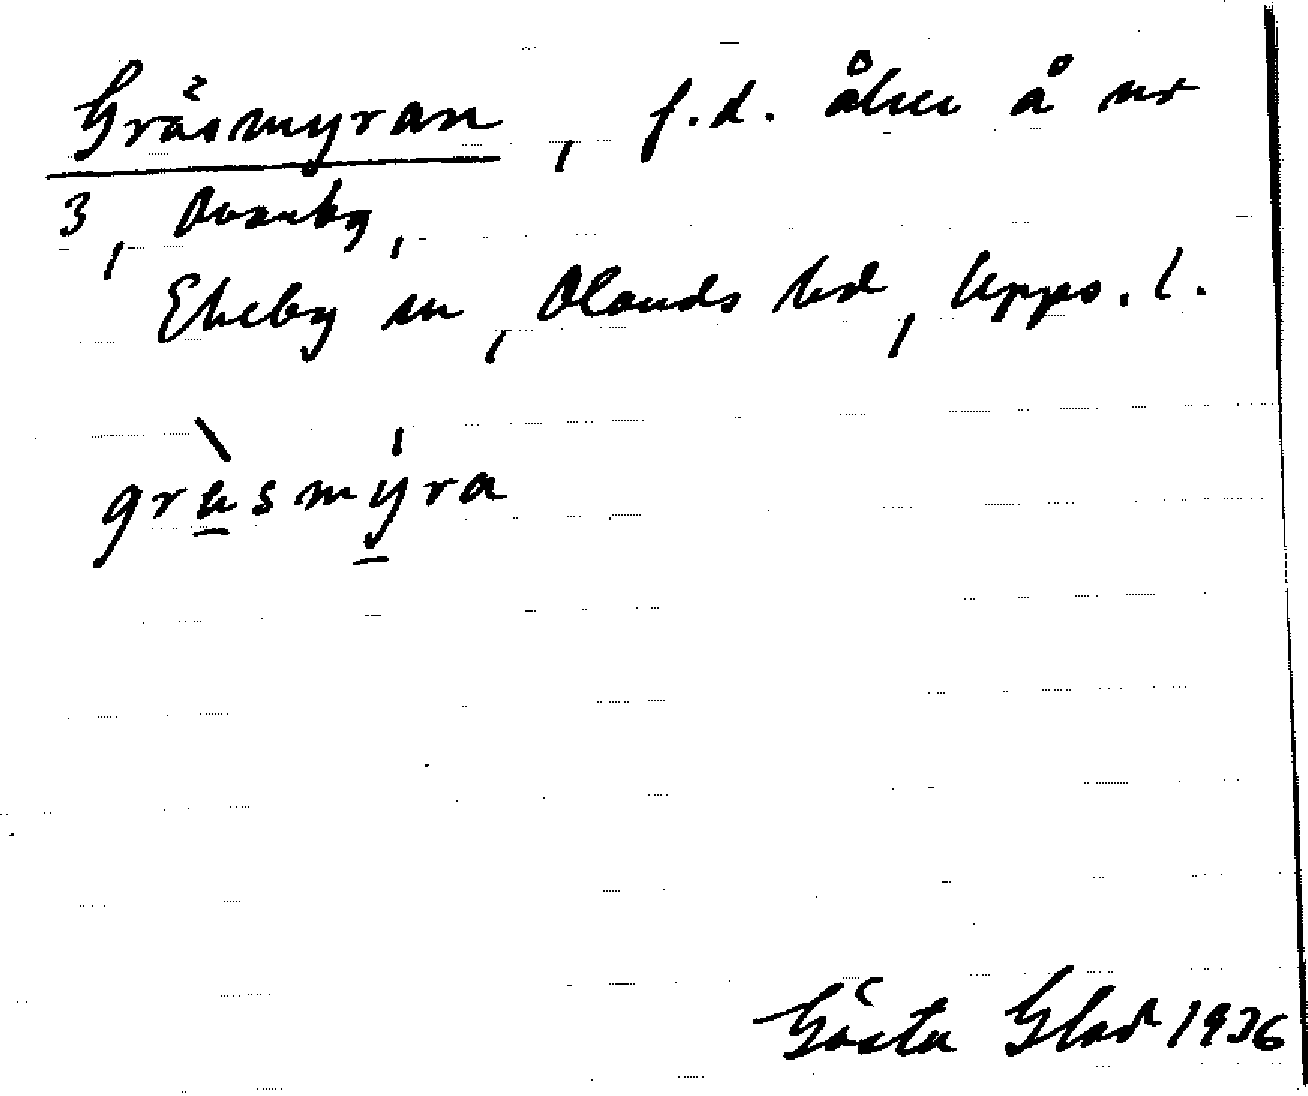 Gräsmyran, f.d. åker å nr
3, Svanby,
Ekeby sn, Olands hd, Upps. l.
gräsmýra
Gösta Glad 1936